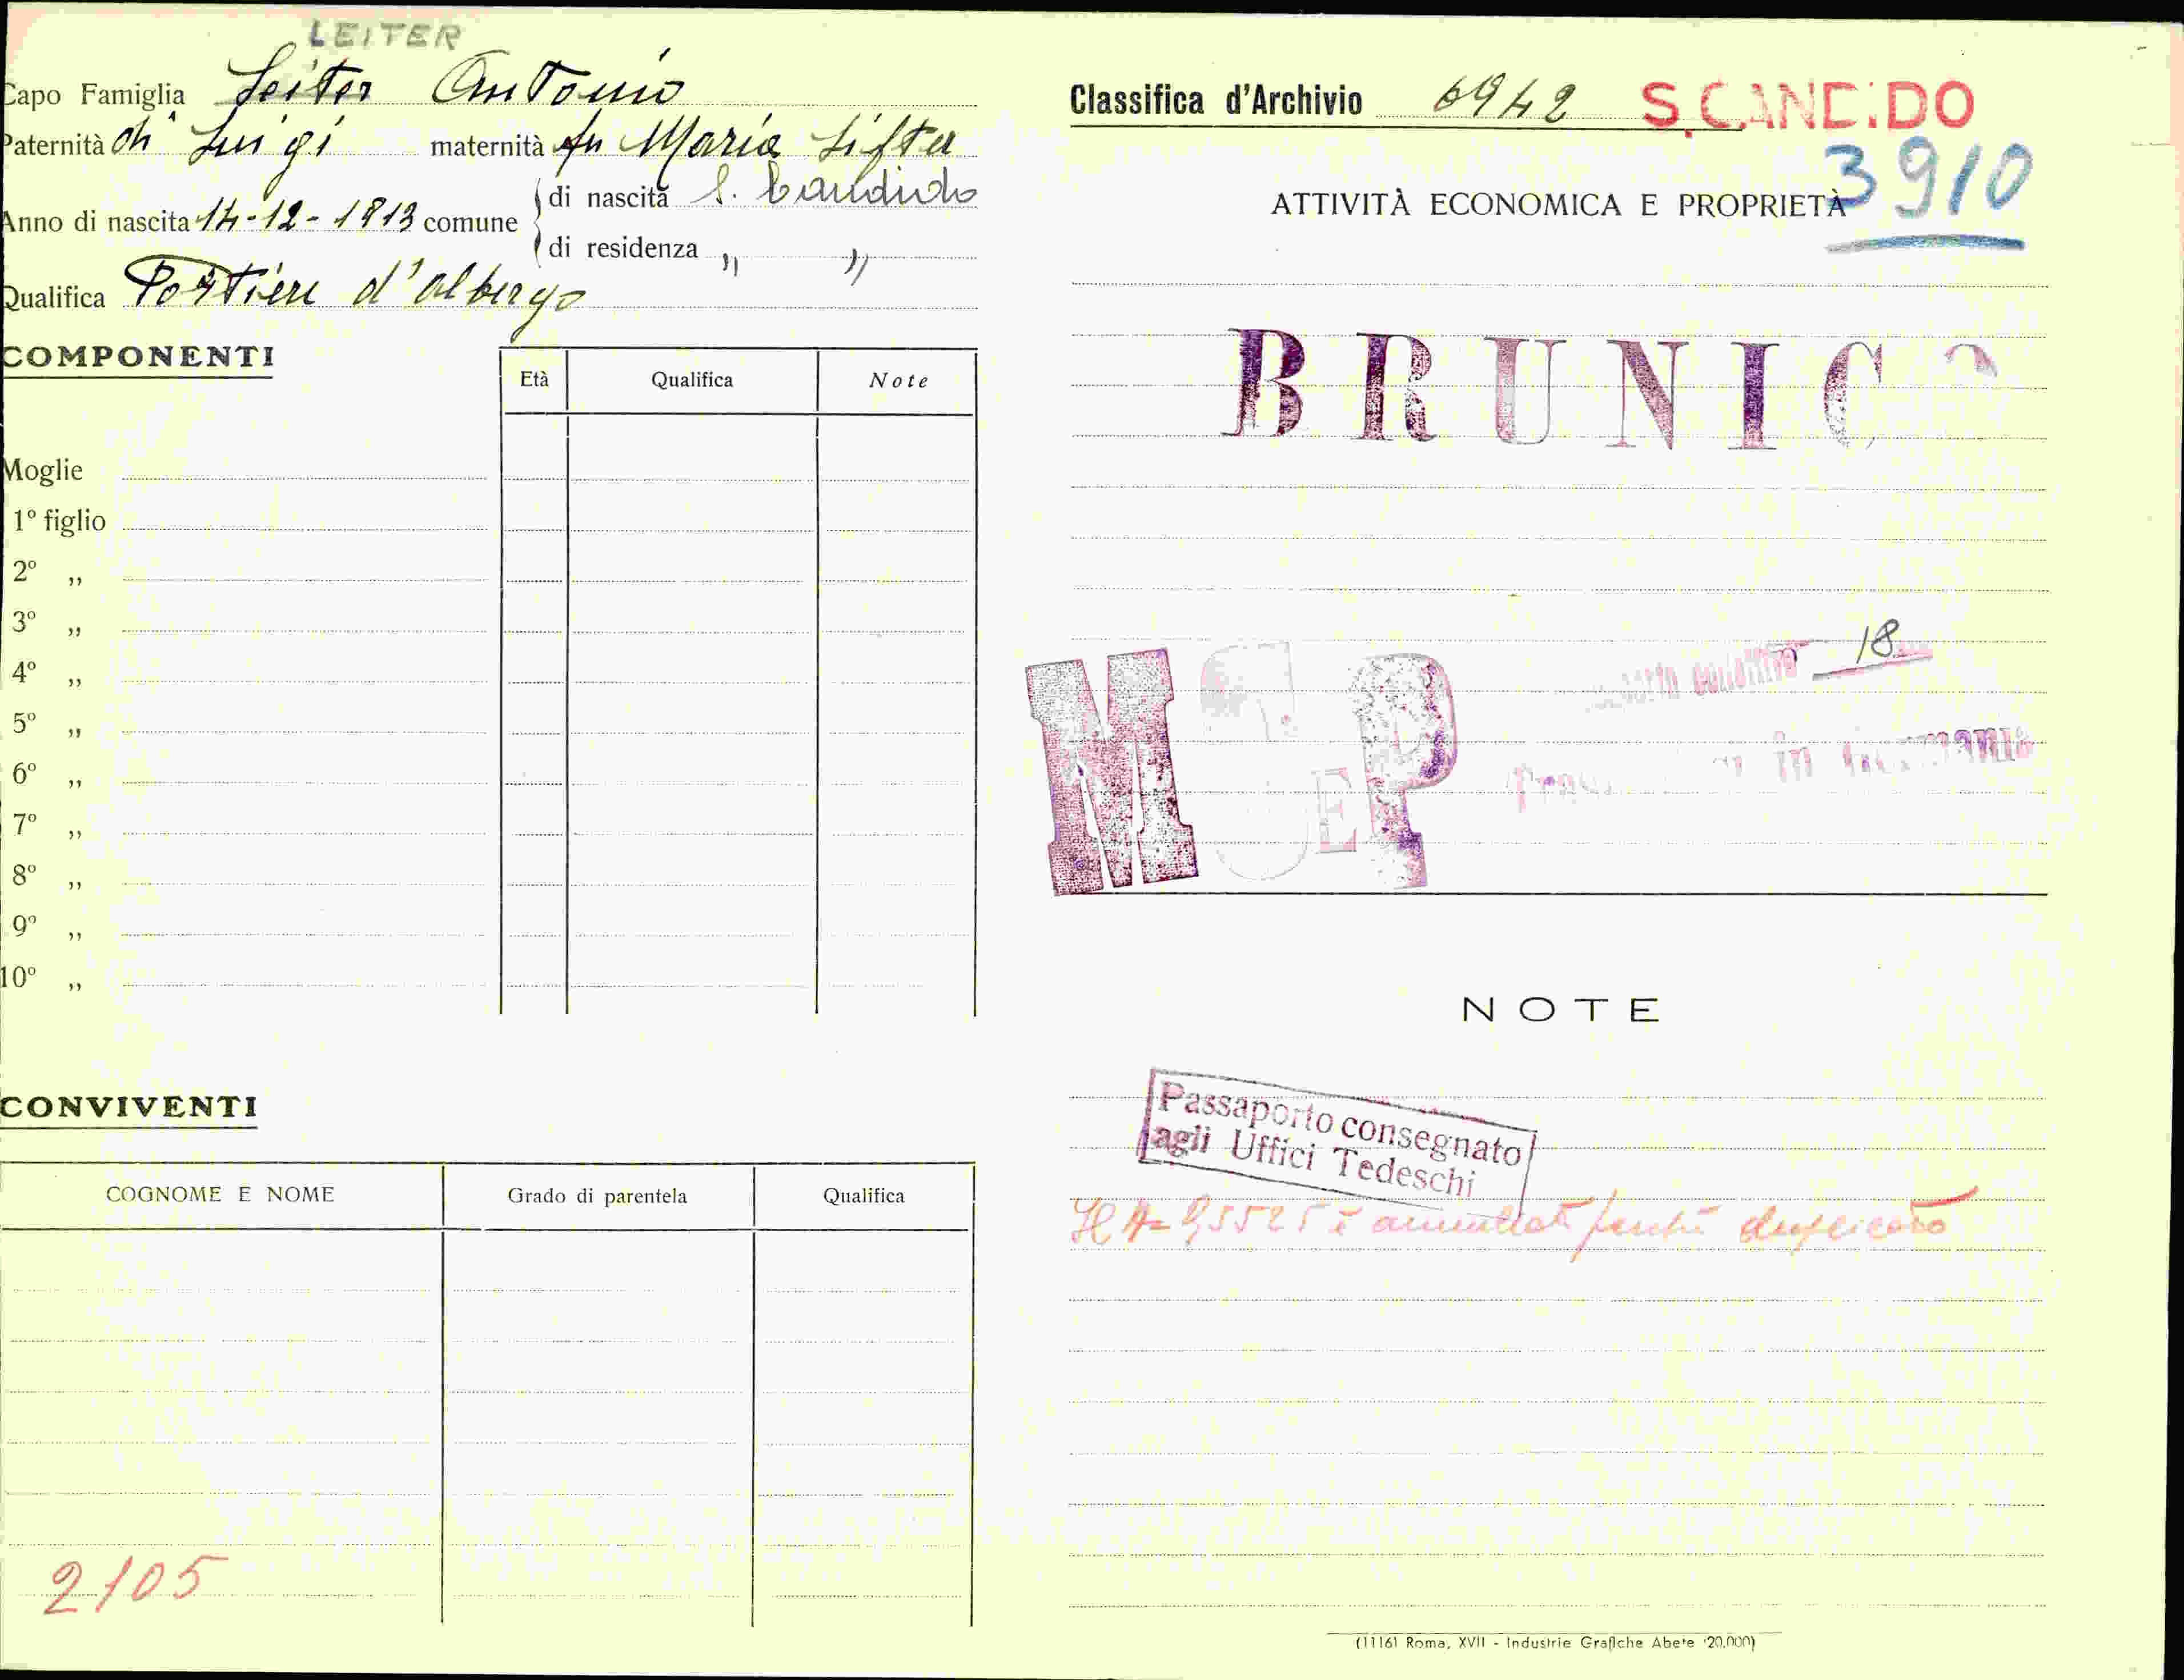 LEITER
Capo Famiglia Leiter Antonio
Paternità di Luigi maternità fu Maria
Anno di nascita 14-12-1913 comune di nascita S. Candido
di residenza " "
Qualifica Portiere d'albergo
COMPONENTI
Età Qualifica Note
Moglie
1º figlio
2º "
3º "
4º "
5º "
6º "
7º "
8º "
9º "
10º "
CONVIVENTI
COGNOME E NOME Grado di parentela Qualifica
2105
Classifica d'Archivio 6942 S. CANDIDO
3910
ATTIVITÀ ECONOMICA E PROPRIETÀ
BRUNICO
18
M P
in
NOTE
Passaporto consegnato
agli Uffici Tedeschi
è annullato perché duplicato
(1116) Roma, XVII - Industrie Grafiche Abete (20.000)